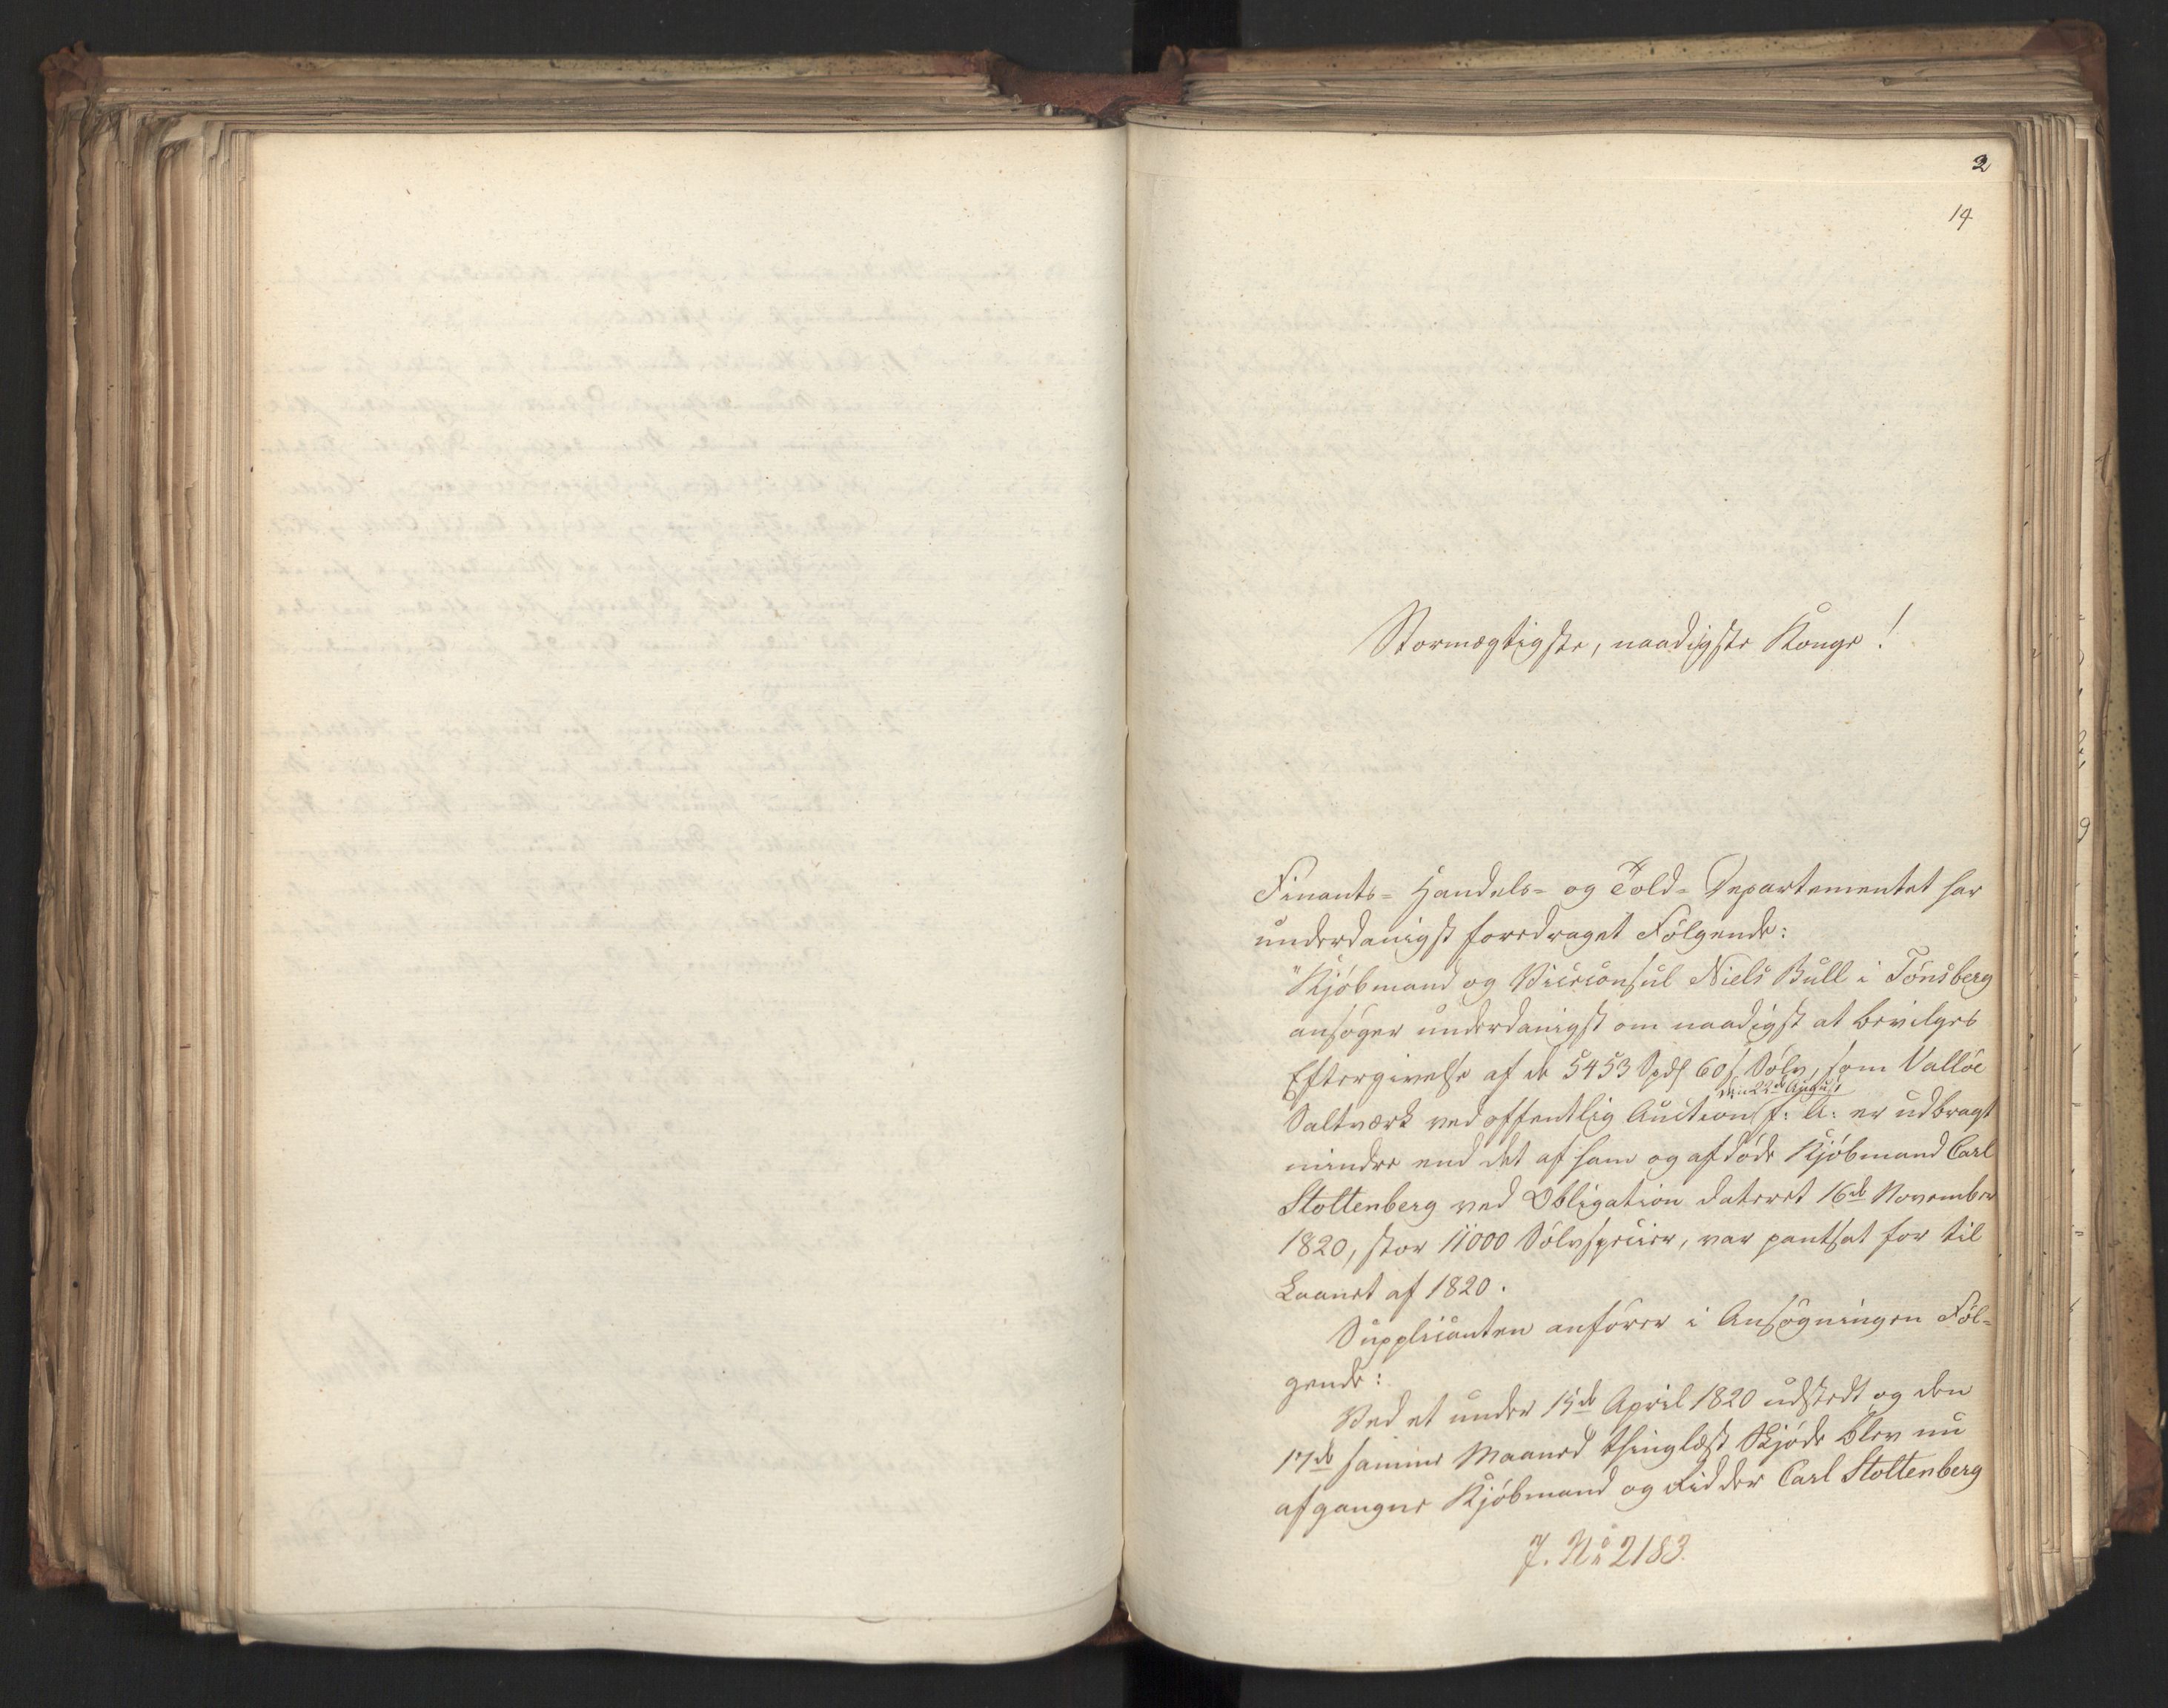 2
14
Stormægtigste, naadigste Konge!
Finants- Handels- og Told-Departementet har
underdanigst foredraget Følgende:
"Kjøbmand og Viceconsul Niels Bull i Tönsberg
ansøger underdanigst om naadigst at bevilges
Eftergivelse af de 5453 Spd 60 s Sølv, som Valløe
den 22de August
Saltværk ved offentlig Auction f: A: er udbragt
mindre end det af ham og afdøde Kjøbmand Carl
Stoltenberg ved Obligation dateret 16de November
1820, stor 11000 Sølvspecier, var pantsat for til
Laanet af 1820.
Supplicanten anfører i Ansøgningen Føl-
gende:
Ved et under 15de April 1820 udstedt og den
17de samme Maaned thinglæst Skjøde blev nu
afgangne Kjøbmand og Ridder Carl Stoltenberg
J. No 2183.